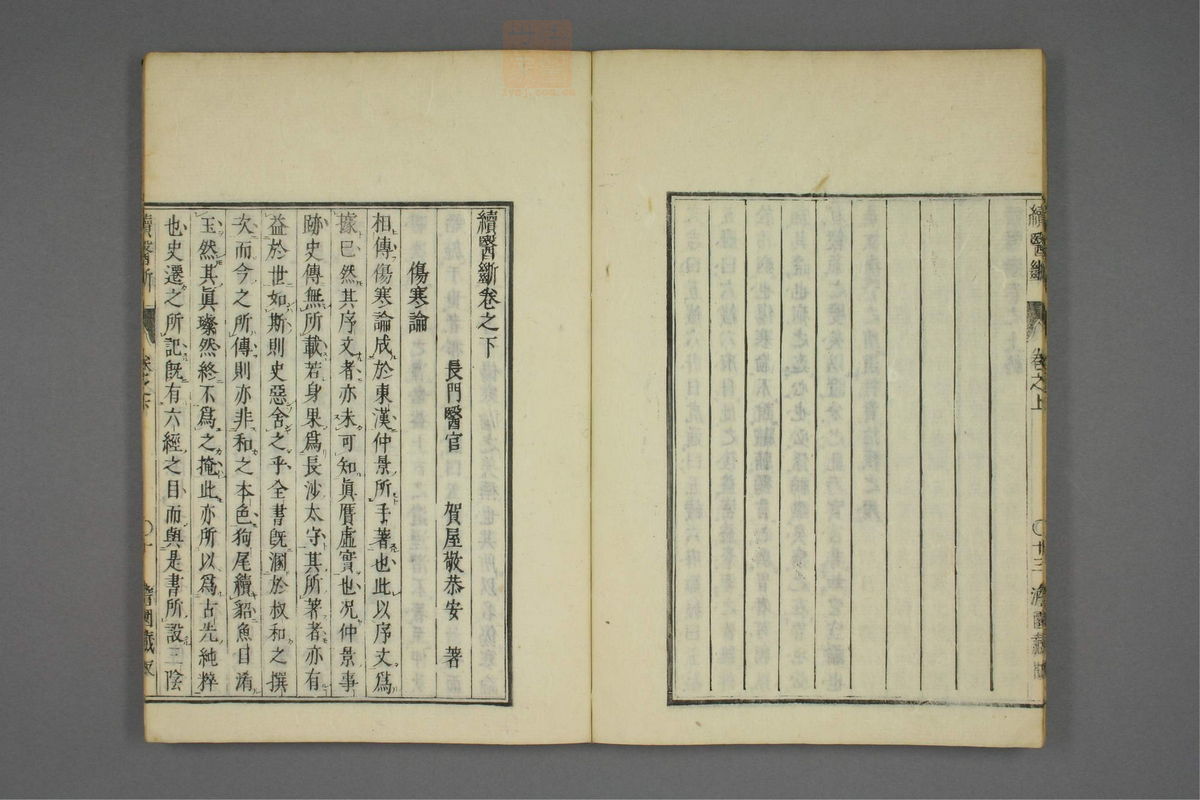 續醫斷
卷之上
〇
卅三
續醫斷卷之下
長門醫官
賀屋敬恭安
著
傷寒論
相傳傷寒論成於東漢仲景所手著也此以序文爲
據已然其序文者亦未可知眞贋虛實也況仲景事
跡史傳無所載若身果爲長沙太守其所著者亦有
益於世如斯則史惡舍之乎全書既溷於叔和之撰
次而今之所傳則亦非和之本色狗尾續貂魚目淆
玉然其眞璨然終不爲之掩此亦所以爲古先純粹
也史遷之所記既有六經之目而與是書所設三陰
續醫斷
卷之下
〇一